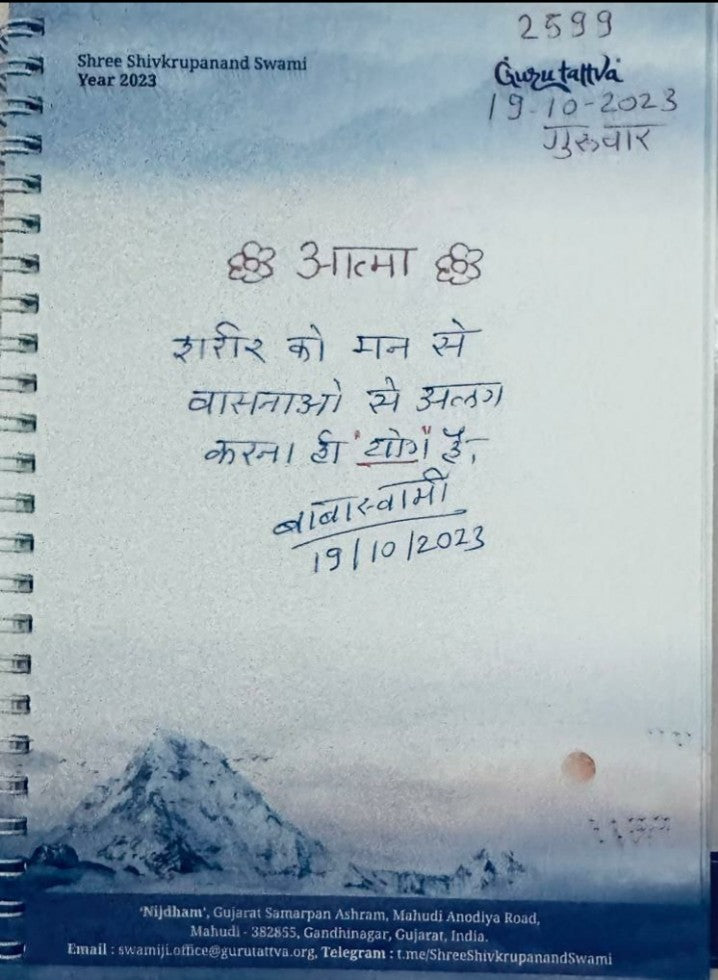 2599
Shree Shivkrupanand Swami
Year 2023
Gurutattva
19-10-2023
गुरुवार
आत्मा
शरीर को मन से
वासनाओ से अलग
करना ही "योग" है,
बाबास्वामी
19/10/2023
'Nijdham', Gujarat Samarpan Ashram, Mahudi Anodiya Road,
Mahudi - 382855, Gandhinagar, Gujarat, India.
Email : swamiji.office@gurutattva.org, Telegram : t.me/ShreeShivkrupanandSwami